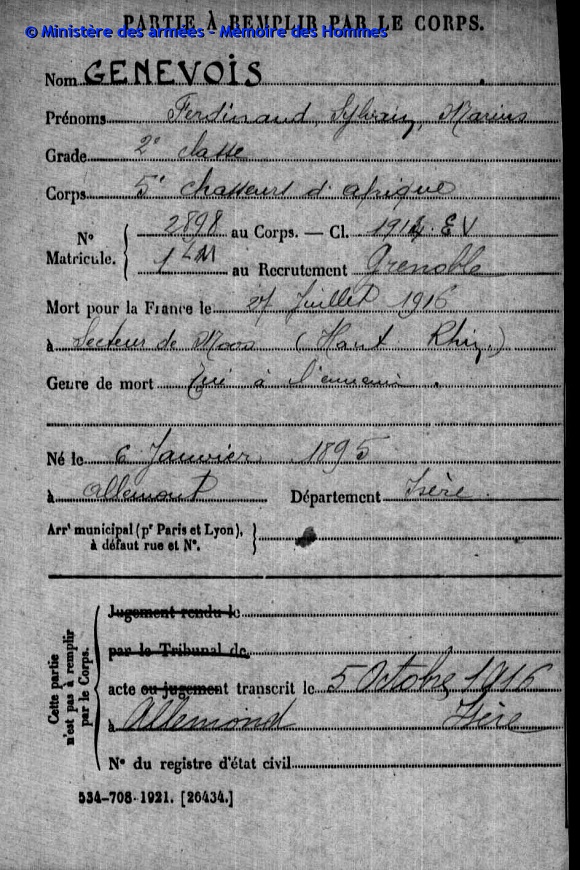 PARTIE À REMPLIR PAR LE CORPS.
© Ministère des armées - Mémoire des Hommes
Nom GENEVOIS
Prénoms Ferdinand, Sylvain, Marius
Grade 2e classe
Corps 5e chasseurs d'afrique
N° Matricule. { 2898 au Corps. — Cl. 1914. EV
1 LM au Recrutement Grenoble
Mort pour la France le 27 Juillet 1916
à Secteur de Moos (Haut Rhin.)
Genre de mort Tué à l'ennemi.
Né le 6 Janvier 1895
à allemont Département Isère.
Arrt municipal (pr Paris et Lyon),
à défaut rue et N°. }
Cette partie n'est pas à remplir par le Corps. {
Jugement rendu le
par le Tribunal de
acte ou jugement transcrit le 5 Octobre 1916
à Allemond Isère
N° du registre d'état civil
534-708-1921. [26434.]